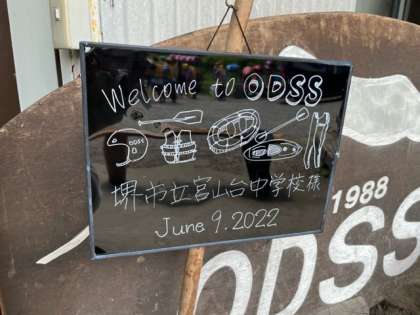 Welcome to ODSS
ODSS
堺市立宮山台中学校様
June 9.2022
1988
ODSS